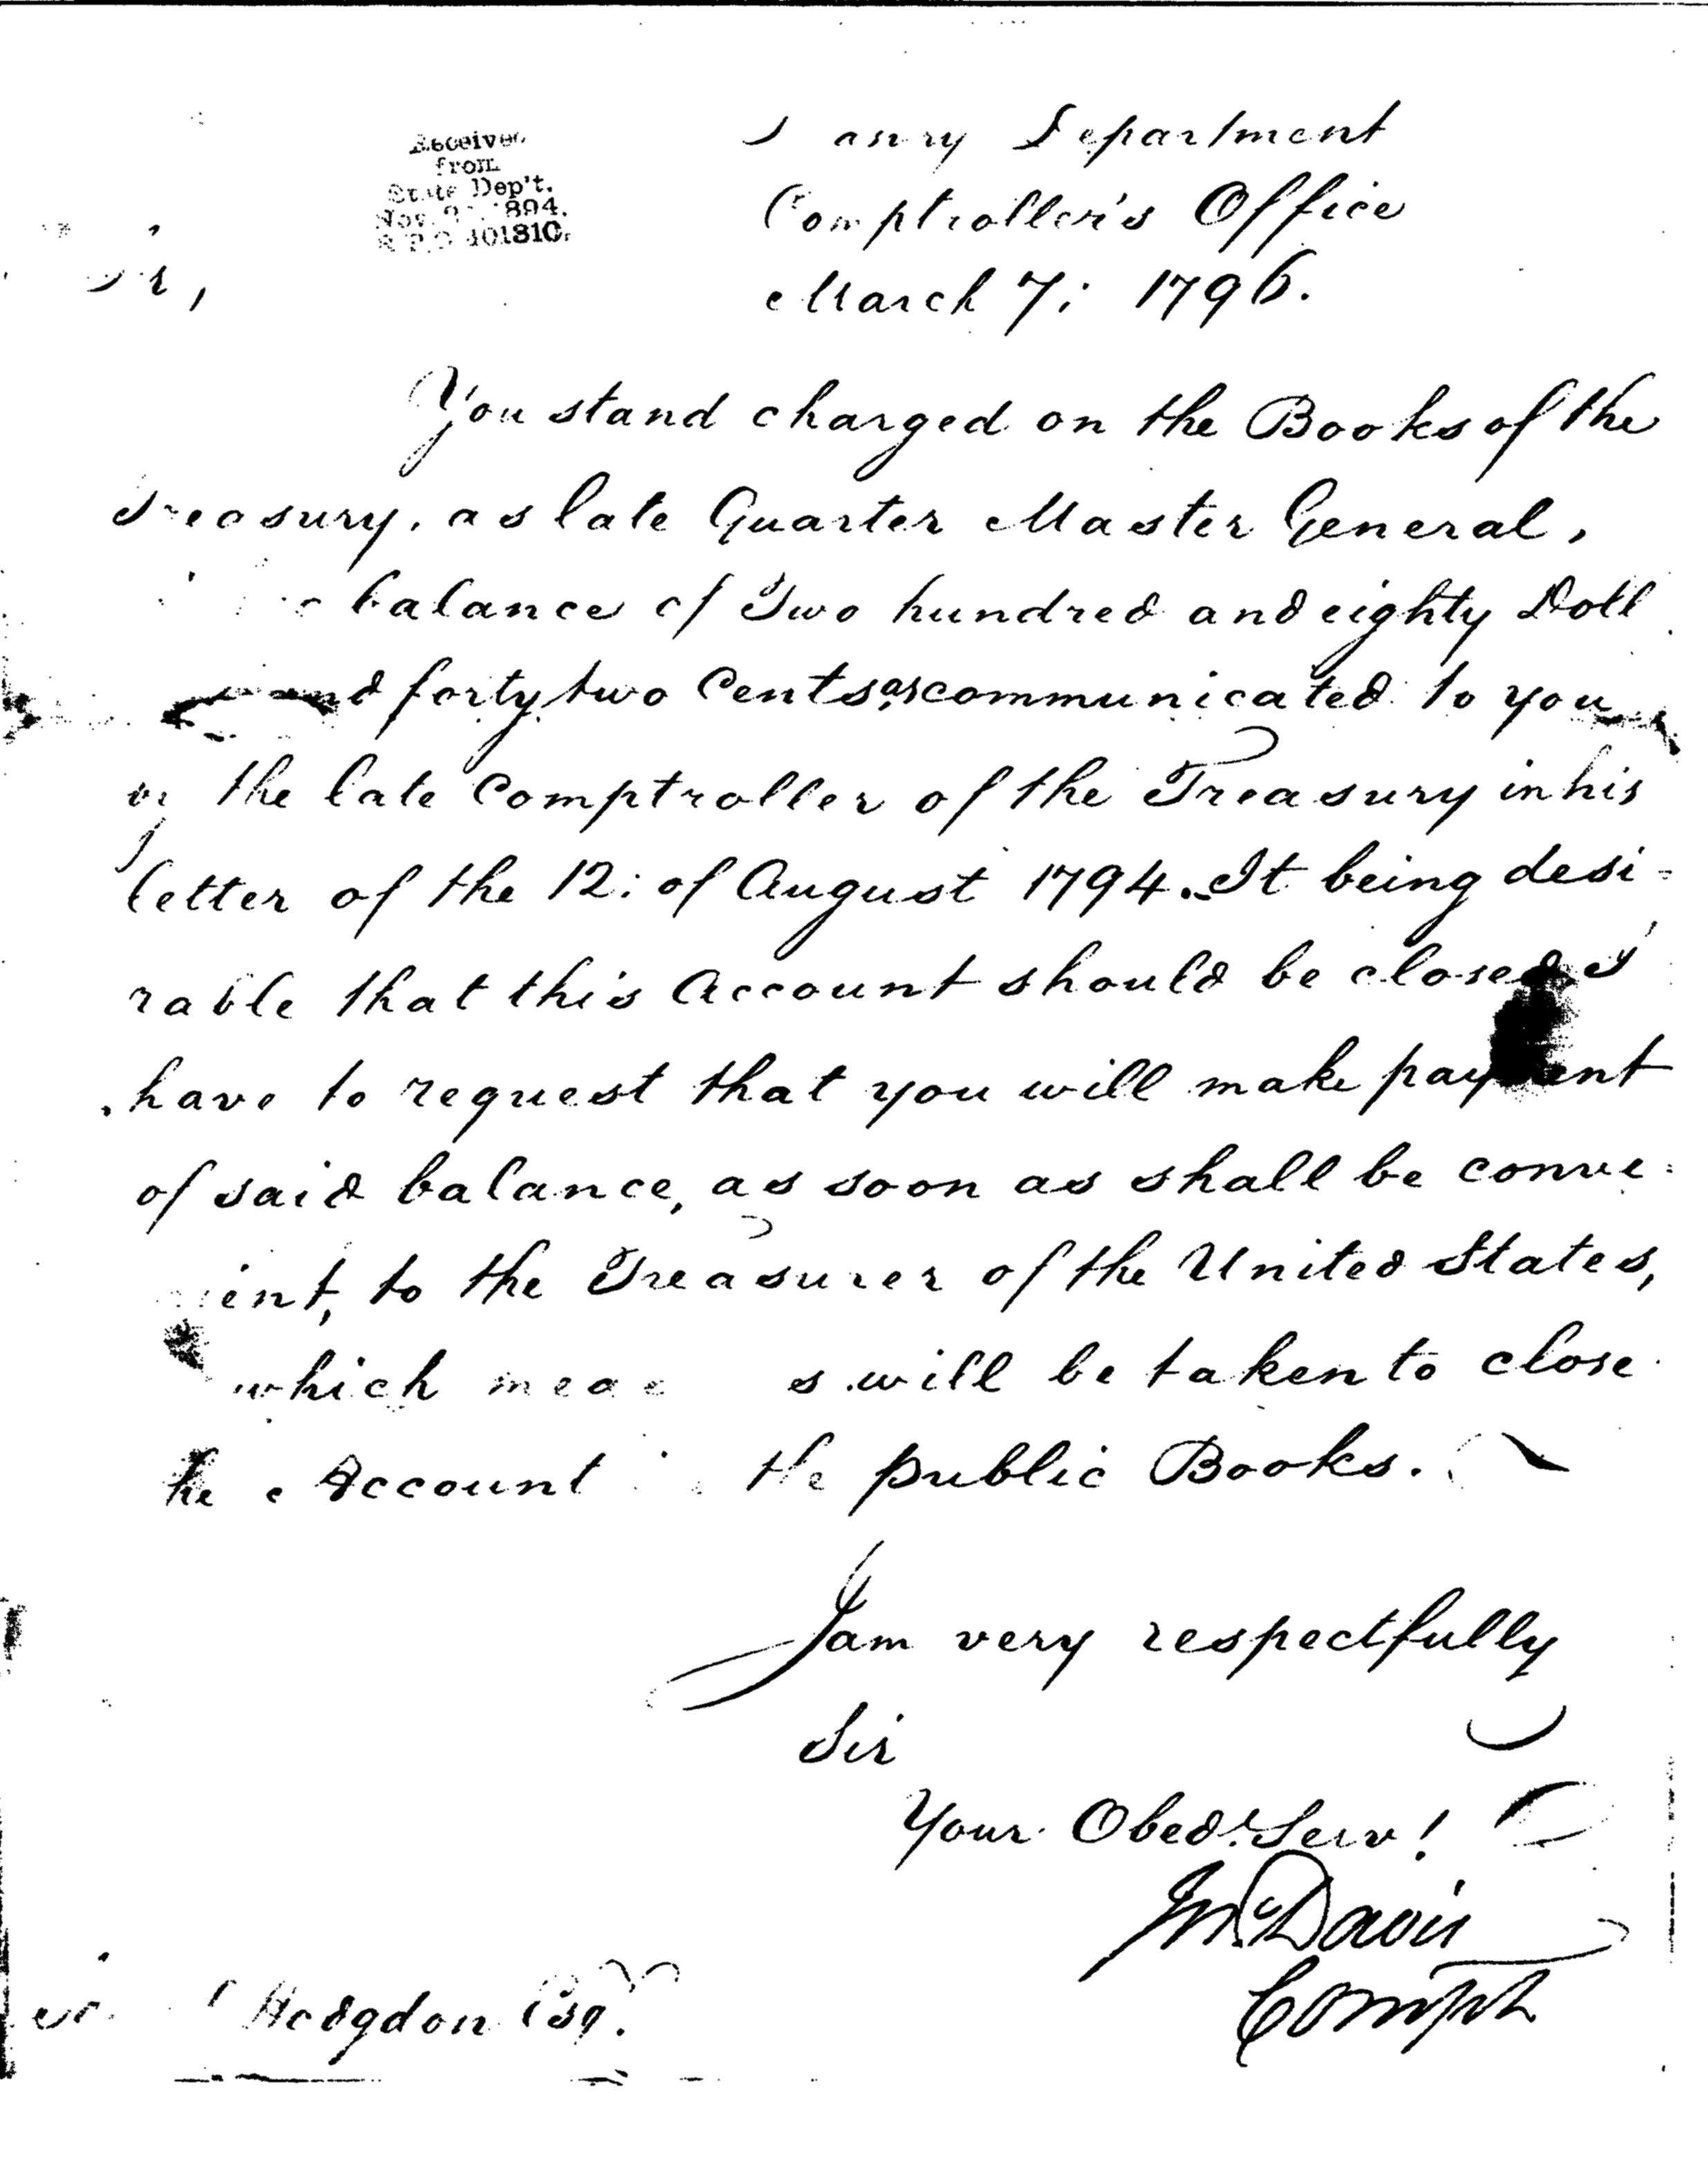 Received
from
State Dep't.
Nov. 1894.
101810.
Department
Comptroller's Office
March 7; 1796.
You stand charged on the Books of the
Treasury, as late Quarter Master General,
balance of Two hundred and eighty Doll
and forty two Cents, as communicated to you
by the late Comptroller of the Treasury in his
letter of the 12: of August 1794. It being desi-
rable that this Account should be closed I
have to request that you will make payment
of said balance, as soon as shall be conve-
nient, to the Treasurer of the United States,
which will be taken to close
the Account the public Books.
I am very respectfully
Sir
Your Obedt. Servt
Jn. Davis
Compt
Hodgdon Esq.